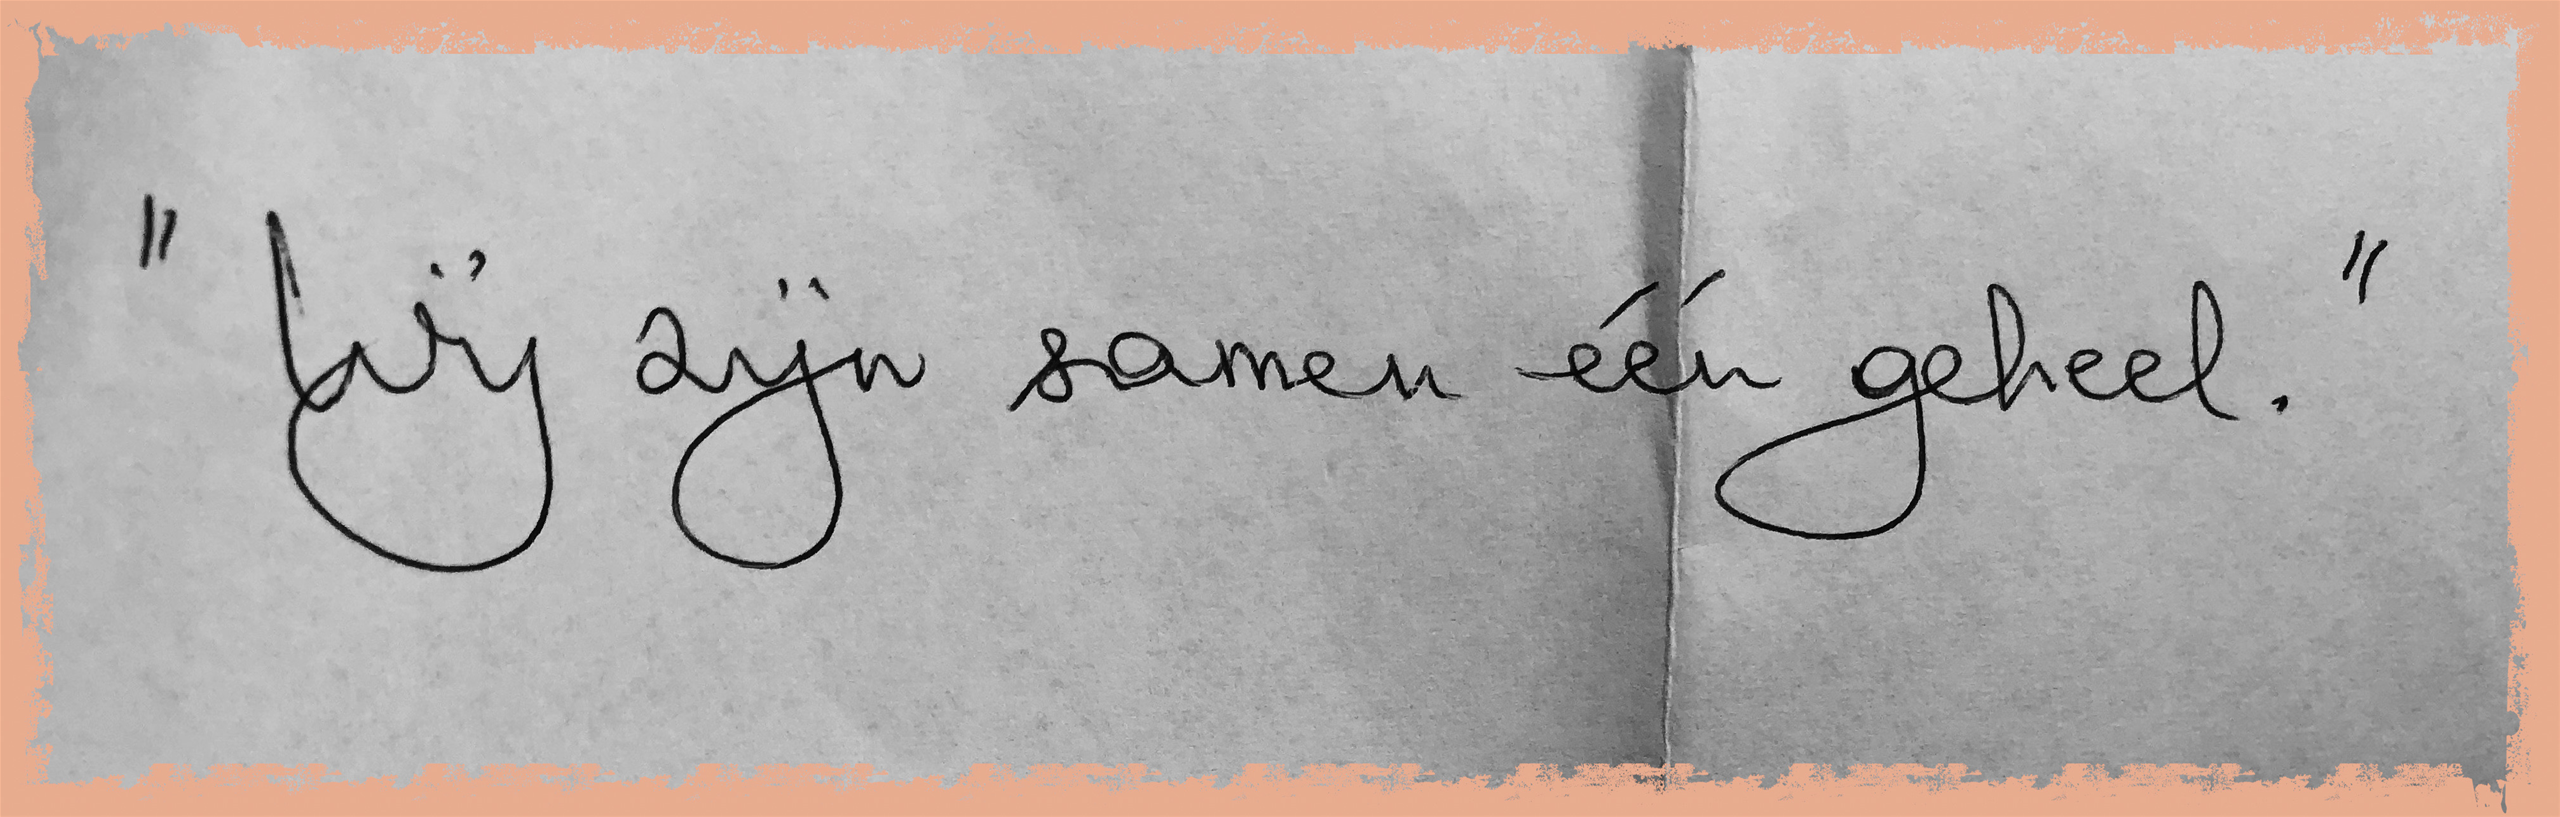 "Wij zijn samen één geheel."